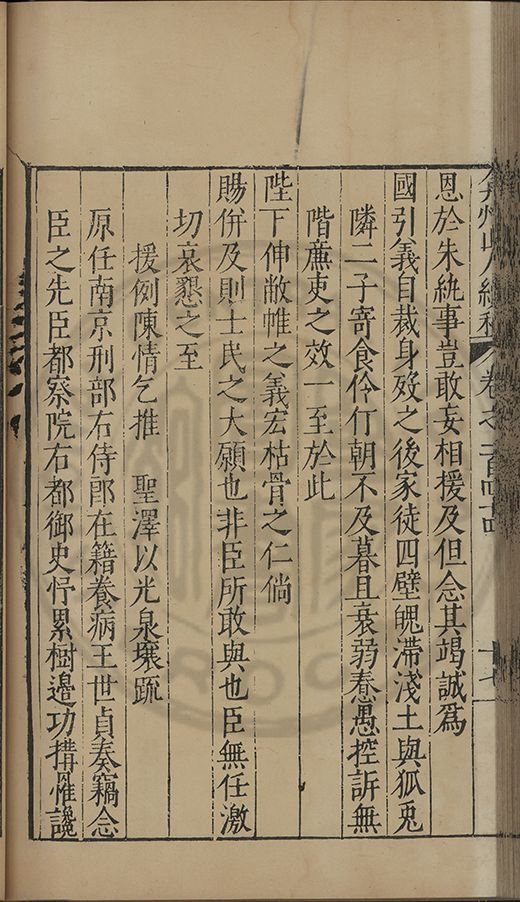 弇州山人續稿 卷之一百四十四 十七
恩於朱紈事豈敢妄相援及但念其竭誠爲
國引義自裁身歿之後家徒四壁魄滯淺土與狐兎
隣二子寄食伶仃朝不及暮且衰弱惷愚控訴無
階亷吏之效一至於此
陛下伸敝帷之義宏枯骨之仁倘
賜併及則士民之大願也非臣所敢與也臣無任激
切哀懇之至
援例陳情乞推 聖澤以光泉壤疏
原任南京刑部右侍郎在籍養病王世貞奏竊念
臣之先臣都察院右都御史忬累樹邊功搆罹讒